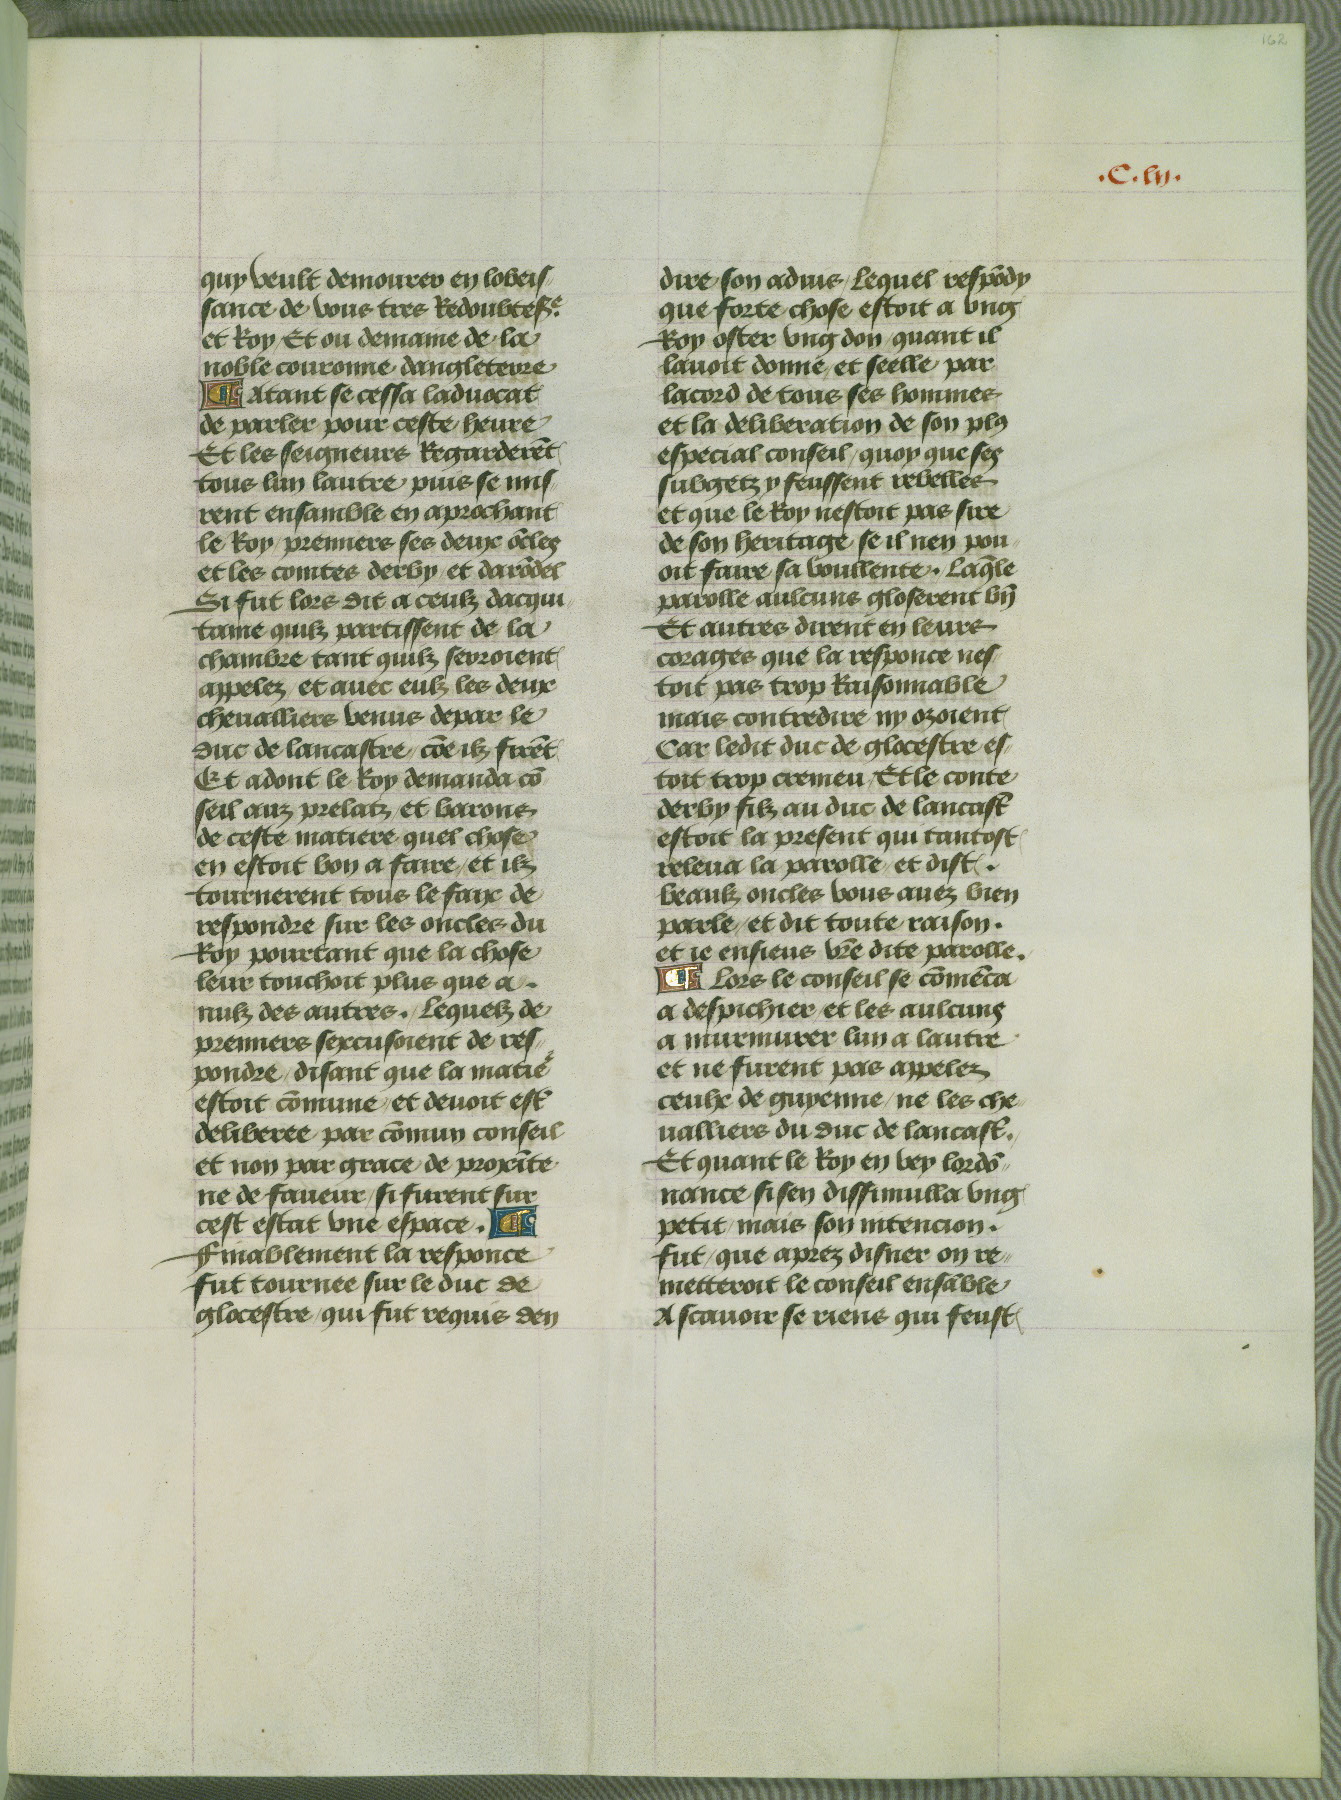 162
.C.lij.
quy veult demourer en lobeis/
sance de vous tres Redoubte sr̃e.
et Roy Et ou demaine de la
noble couronne dangleterre
¶ Atant se cessa laduocat
de parler pour ceste heure
Et les seigneurs Regarderẽt
tous lun lautre puis se mis/
rent ensamble en aprochant
le Roy / premiers ses deux õcles
et les comtes derby et darõdel
Si fut lors dit a ceulz dacqui
taine quilz partissent de la
chambre tant quilz seroient
appelez et auec eulz les deux
cheualliers venus depar le
duc de lancastre / cõe ilz firẽt
Et adont le Roy demanda cõ
seil auz prelatz et barons
de ceste matiere quel chose
en estoit bon a faire / et ilz
tournerent tous le faix de
respondre sur les oncles du
Roy pourtant que la chose
leur touchoit plus que a .
nulz des autres . Lequelz de
premiers sexcusoient de res/
pondre / disant que la matiẽ
estoit cõmune et deuoit estr̃
deliberee par cõmun conseil
et non par grace de proxĩte
ne de faueur / si furent sur
cest estat vne espace . ¶
Finablement la responce
fut tournee sur le duc de
glocestre / qui fut requis den
dire son aduis / Lequel respõdy
que forte chose estoit a vng
Roy oster vng don quant il
lauoit donne et seelle par
lacord de tous ses hommes
et la deliberation de son plꝰ
especial conseil / quoy que ses
subgetz y feussent rebelles
et que le Roy nestoit pas sire
de son heritage se il nen pou
oit faire sa voullente . Laq̃le
parolle aulcuns gloserent bñ
Et autres dirent en leurs
corages que la responce nes/
toit pas trop Raisonnable
mais contredire ny ozoient
Car ledit duc de glocestre es/
toit trop cremeu / Et le conte
derby filz au duc de lancastr̃
estoit la present qui tantost
releua la parolle et dist .
beaulz oncles vous auez bien
parle / et dit toute raison .
et ie ensieus vr̃e dite parolle .
¶ Lors le conseil se cõmẽca
a despichier et les aulcuns
a murmurer lun a lautre
et ne furent pas appelez
ceulx de guyenne / ne les che
ualliers du duc de lancastr̃ .
Et quant le Roy en vey lordõ/
nance si sen dissimulla vng
petit / mais son intencion .
fut / que aprez disner on re/
metteroit le conseil ensãble
A scauoir se riens qui feust